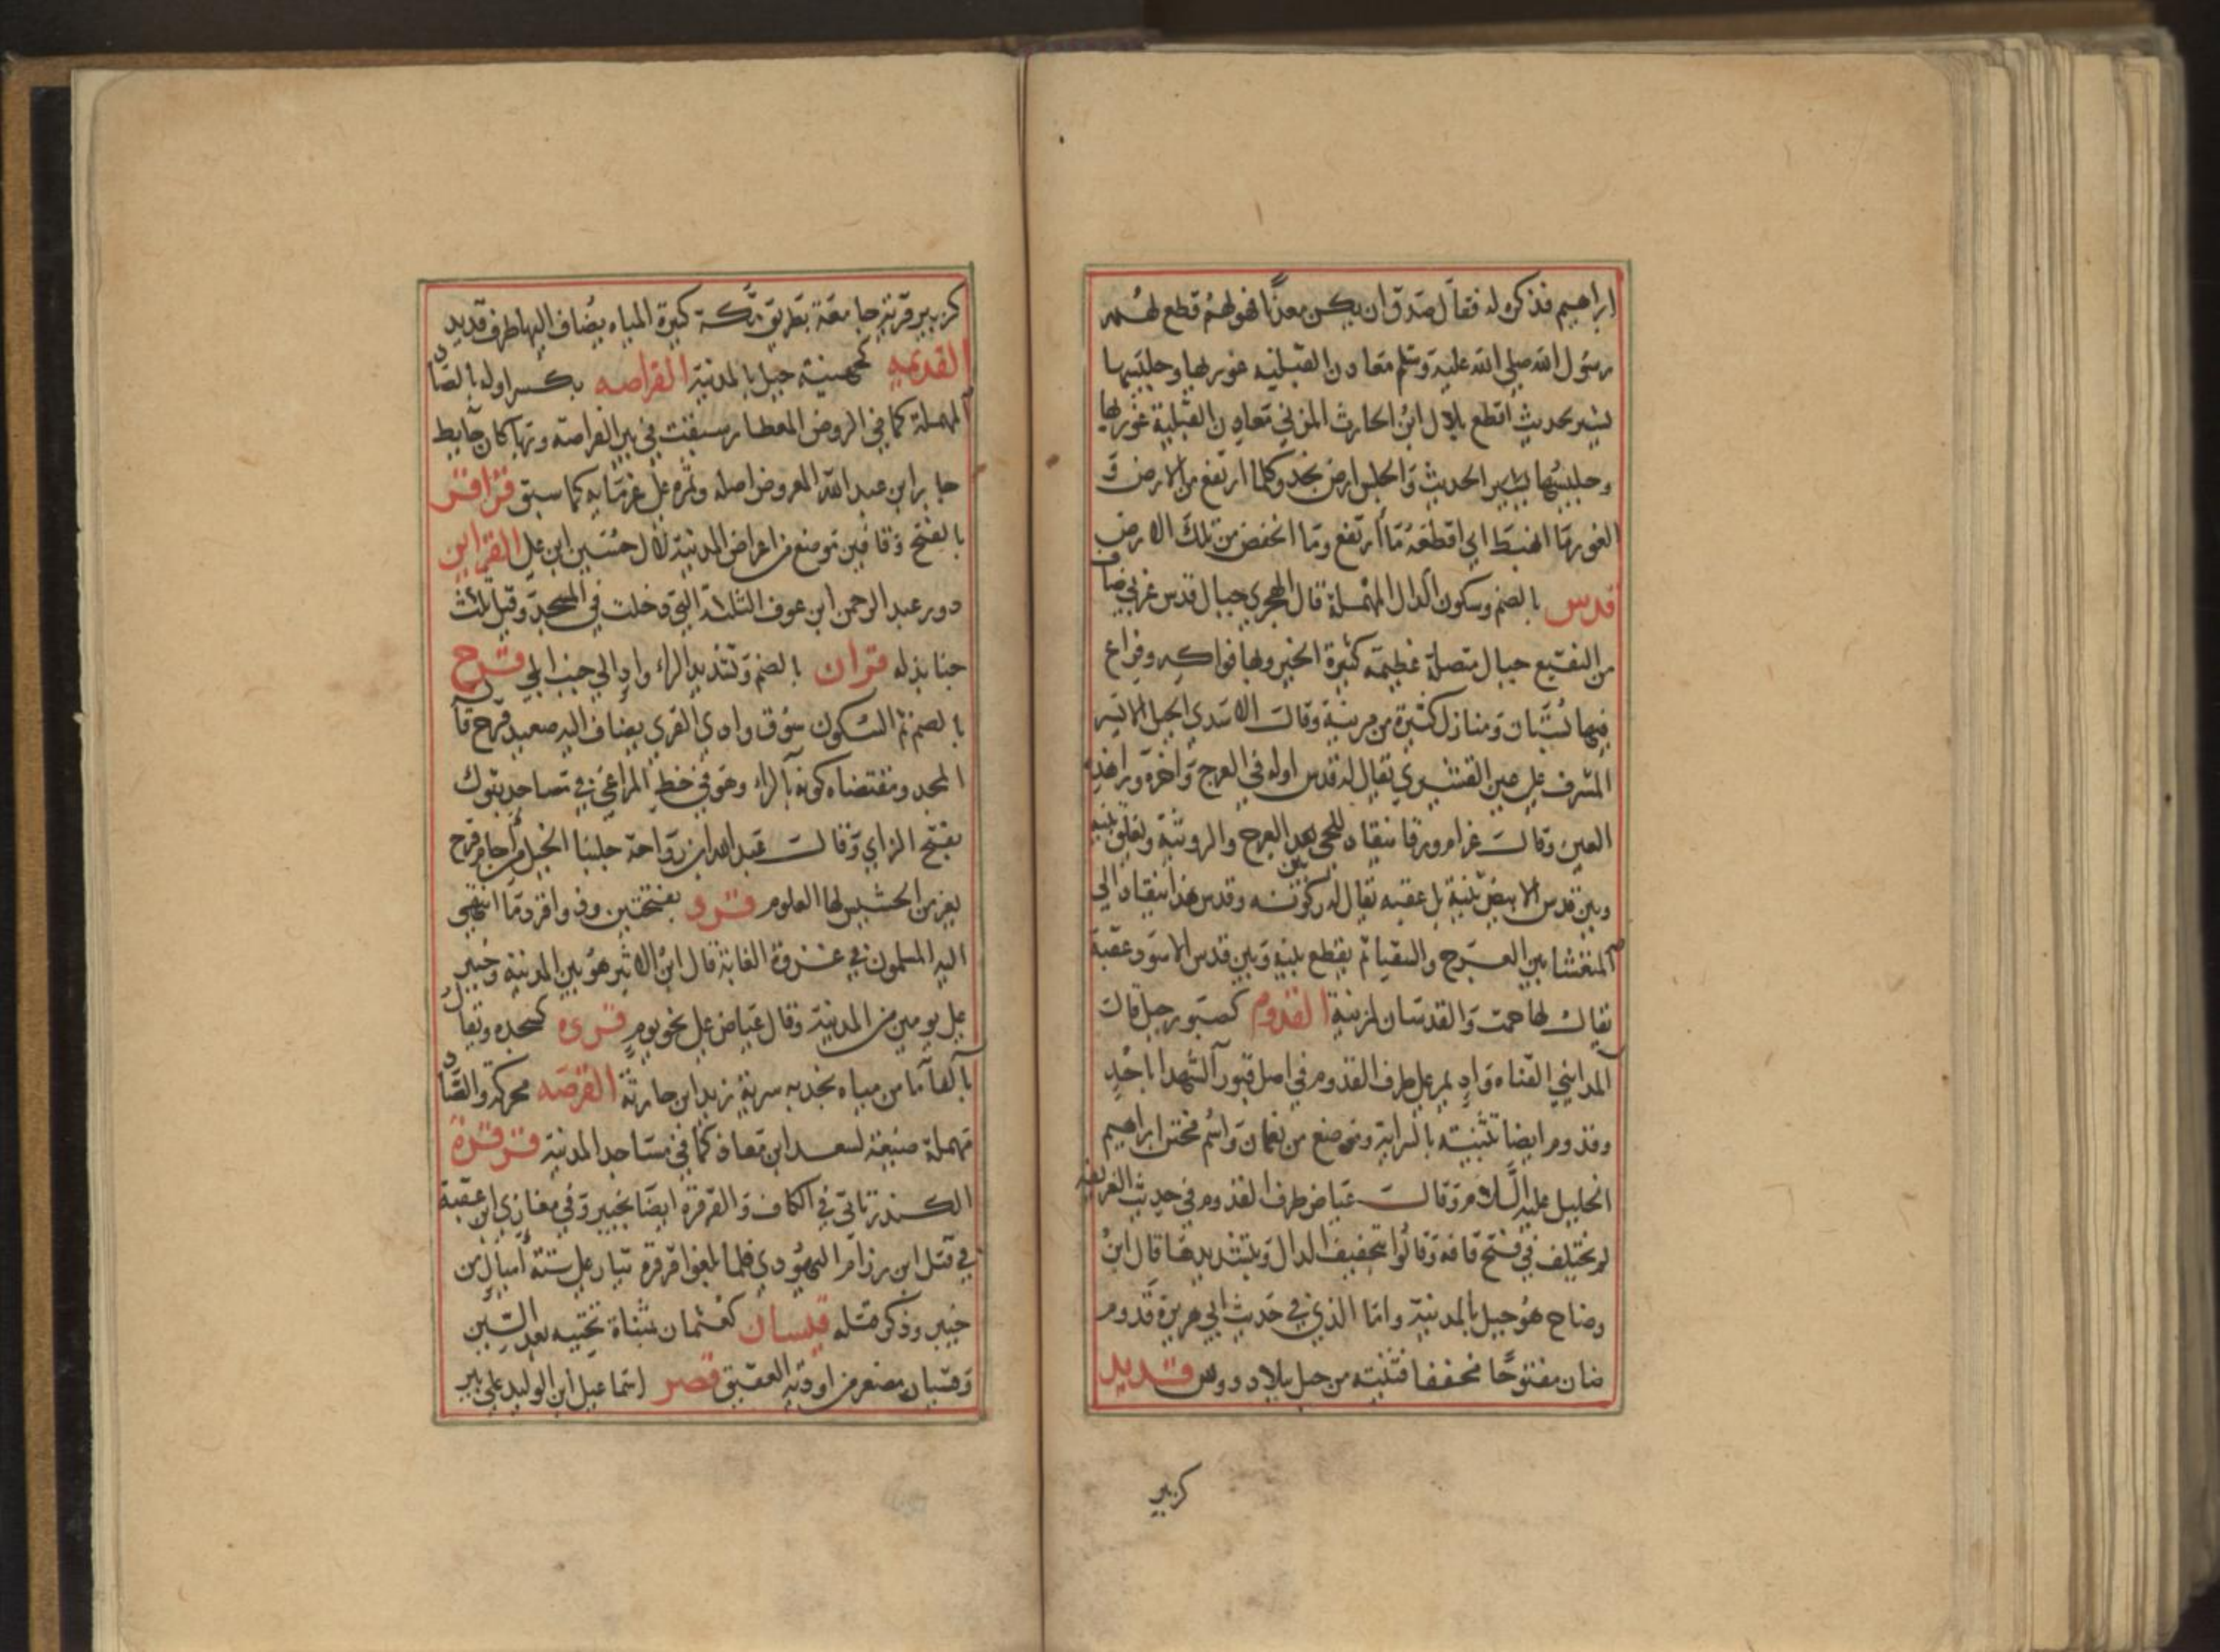 ابراهيم فذكره له فقال صدق ان يكن معدنا فهو لهم قطع لهم
رسول الله صلى الله عليه وسلم معادن القبلية غوريها وجلسيها
يشير بحديث اقطع بلال ابن الحارث المزني معادن القبلية غوريها
وجلسيها الحديث والجلس ارض نجد وكلما ارتفع من الارض و
الغور ما انهبط اي اقطعه ما ارتفع وما انخفض من تلك الارض
قدس بالضم وسكون الدال المهملة قال الهجري جبال قدس غربي ضاف
من النقيع جبال متصلة عظيمة كثيرة الخير وبها فواكه وفراع
فيها بستان ومنازل كثيرة من مزينة وقال الاسدي الجبل الايسر
المشرف على عين القشيري يقال له قدس اوله في العرج واخره وراهذه
العين وقال عرام ورقان ينقاد للجي بين العرج والرويثة ويفلق بينه
وبين قدس الابيض ثنية بل عقبه يقال له ركوبه وقدس هذا ينقاد الى
المتعشا بين العرج والسقيا ثم يقطع بينه وبين قدس الاسود عقبة
يقال لها حمت والقدسان لمزينة القدوم كصبور جبل قال
المدايني القناه واد يمر على طرف القدوم في اصل قبور الشهدا باحد
وقدوم ايضا ثنية بالسراة وموضع من نعمان واسم مختن ابراهيم
الخليل عليه السلام وقال عياض طرف القدوم في حديث الفريعة
لم يختلف في فتح قافه وقالوا بتخفيف الدال وبتشديدها قال ابن
وضاح هو جبل بالمدينة واما الذي في حديث ابي هريرة قدوم
ضان مفتوحا مخففا فثنية من جبل بلاد دوس قديد
كزبير
كزبير قرية جامعة بطريق مكة كثيرة المياه يضاف اليها طرف قديد
القديمه كجهينة جبل بالمدينة القراصه بكسر اوله بالصاد
المهملة كما في الروض المعطار سبقت في بير القراصة وبها كان حايط
جابر ابن عبد الله المعروض اصله وثمره على غرمايه كما سبق قراقر
بالفتح وقافين موضع من اعراض المدينة لال حسين ابن علي القراين
دور عبد الرحمن ابن عوف الثلاثة التي دخلت في المسجد وقيل ثلاث
جنابذ له قران بالضم وتشديد الراء واد الى جنب ابلي قرح
بالضم ثم السكون سوق وادي القرى يضاف اليه صعيد قرح قال
المجد ومقتضاه كونه بالراء وهو في خط المراغي في مساجد تبوك
بفتح الزاي وقال عبد الله ابن رواحة جلبنا الخيل من اجام قرح
يغر من الحشيش لها العلوم قرد بفتحتين وذو قرد ما انتهى
اليه المسلمون في غزوة الغابة قال ابن الاثير هو بين المدينة وخيبر
على يومين من المدينة وقال عياض على نحو يوم قرده كسجده ويقال
بالفا ما من مياه نجد به سرية زيد ابن حارثة القرصه محركة والصاد
مهملة ضيعة لسعد ابن معاذ كما في مساجد المدينة قرقرة
الكدر تاتي في الكاف والقرقرة ايضا بخيبر وفي مغازي ابن عقبة
في قتل ابن رزام اليهودي فلما بلغوا قرقرة تيار على ستة اميال من
خيبر وذكر قتله قسيان كعثمان بمثناة تحتيه بعد السين
وقسيان مصغر من اودية العقيق قصر اسماعيل ابن الوليد على بير